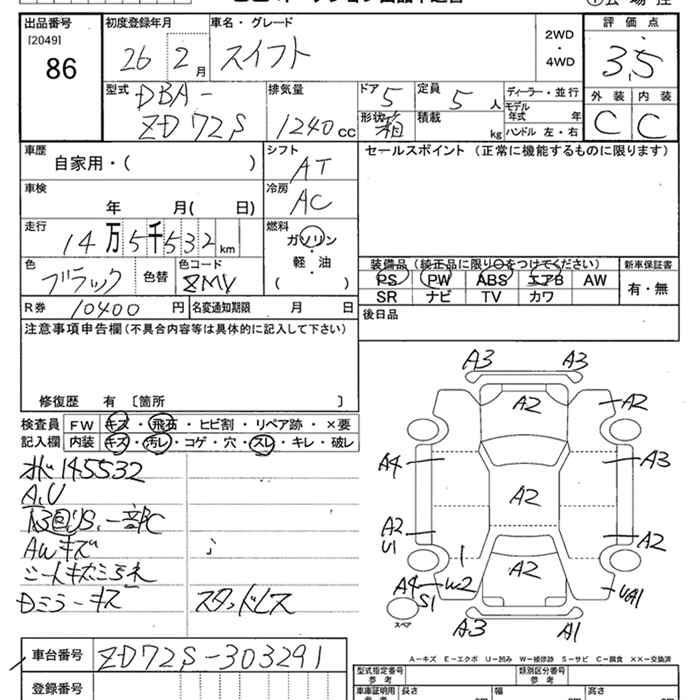 出品番号
[2049]
86
初度登録年月
26 2月
車名・グレード
スイフト
2WD
・
4WD
評価点
3.5
外装 内装
C C
型式
DBA-
ZD72S
排気量
1240cc
ドア
5
定員
5人
形状
箱
積載
kg
ディーラー・並行
モデル
年式 年
ハンドル 左・右
車歴
自家用・( )
シフト
AT
セールスポイント (正常に機能するものに限ります)
車検
年 月( 日)
冷房
AC
走行
14万5千532km
燃料
ガソリン
・
軽・油
( )
色
ブラック
色替
色コード
ZMV
装備品 (純正品に限り○をつけてください)
PS PW ABS エアB AW
SR ナビ TV カワ
新車保証書
有・無
R券 10400円
名変通知期限 月 日
後日品
注意事項申告欄(不具合内容等は具体的に記入して下さい)
修復歴 有 〔箇所 〕
検査員 FW キズ・飛石・ヒビ割・リペア跡・×要
記入欄 内装 キズ・汚レ・コゲ・穴・スレ・キレ・破レ
145532
A.U
AWキズ
Dミラーキズ
スタッドレス
A3 A3
A2
A2
A4
A3
A2
A2
U1
A2
1
A2
A4 W2
S1
スペア
A3 A1
A-キズ E-エクボ U-凹み W-補修跡 S-サビ C-腐食 ××-交換済
車台番号 ZD72S-303291
登録番号
型式指定番号
参考
類別区分番号
参考
車庫証明用
長さ 幅 高さ